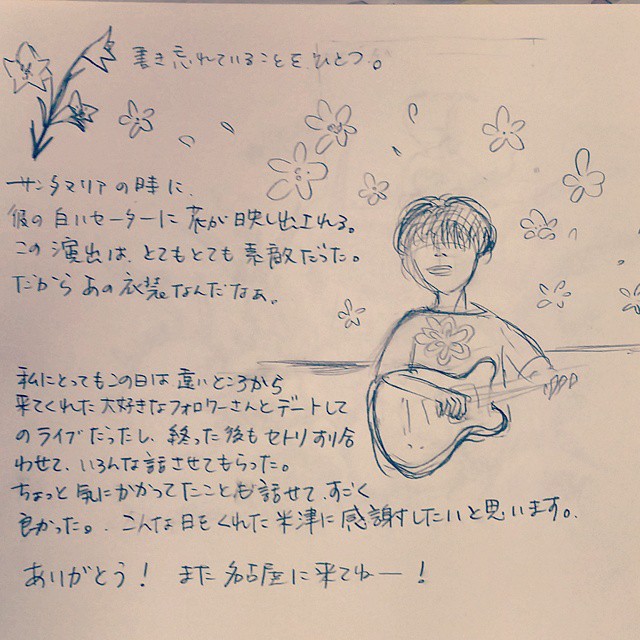 書き忘れていることをひとつ。
サンタマリアの時に、
彼の白いセーターに花が映し出される。
この演出は、とてもとても素敵だった。
だからあの衣装なんだなぁ。
私にとってもこの日は遠いところから
来てくれた大好きなフォロワーさんとデートして
のライブだったし、終った後もセトリすり合
わせて、いろんな話させてもらった。
ちょっと気にかかってたことも話せて、すごく
良かった。こんな日をくれた米津に感謝したいと思います。
ありがとう! また名古屋に来てねー!